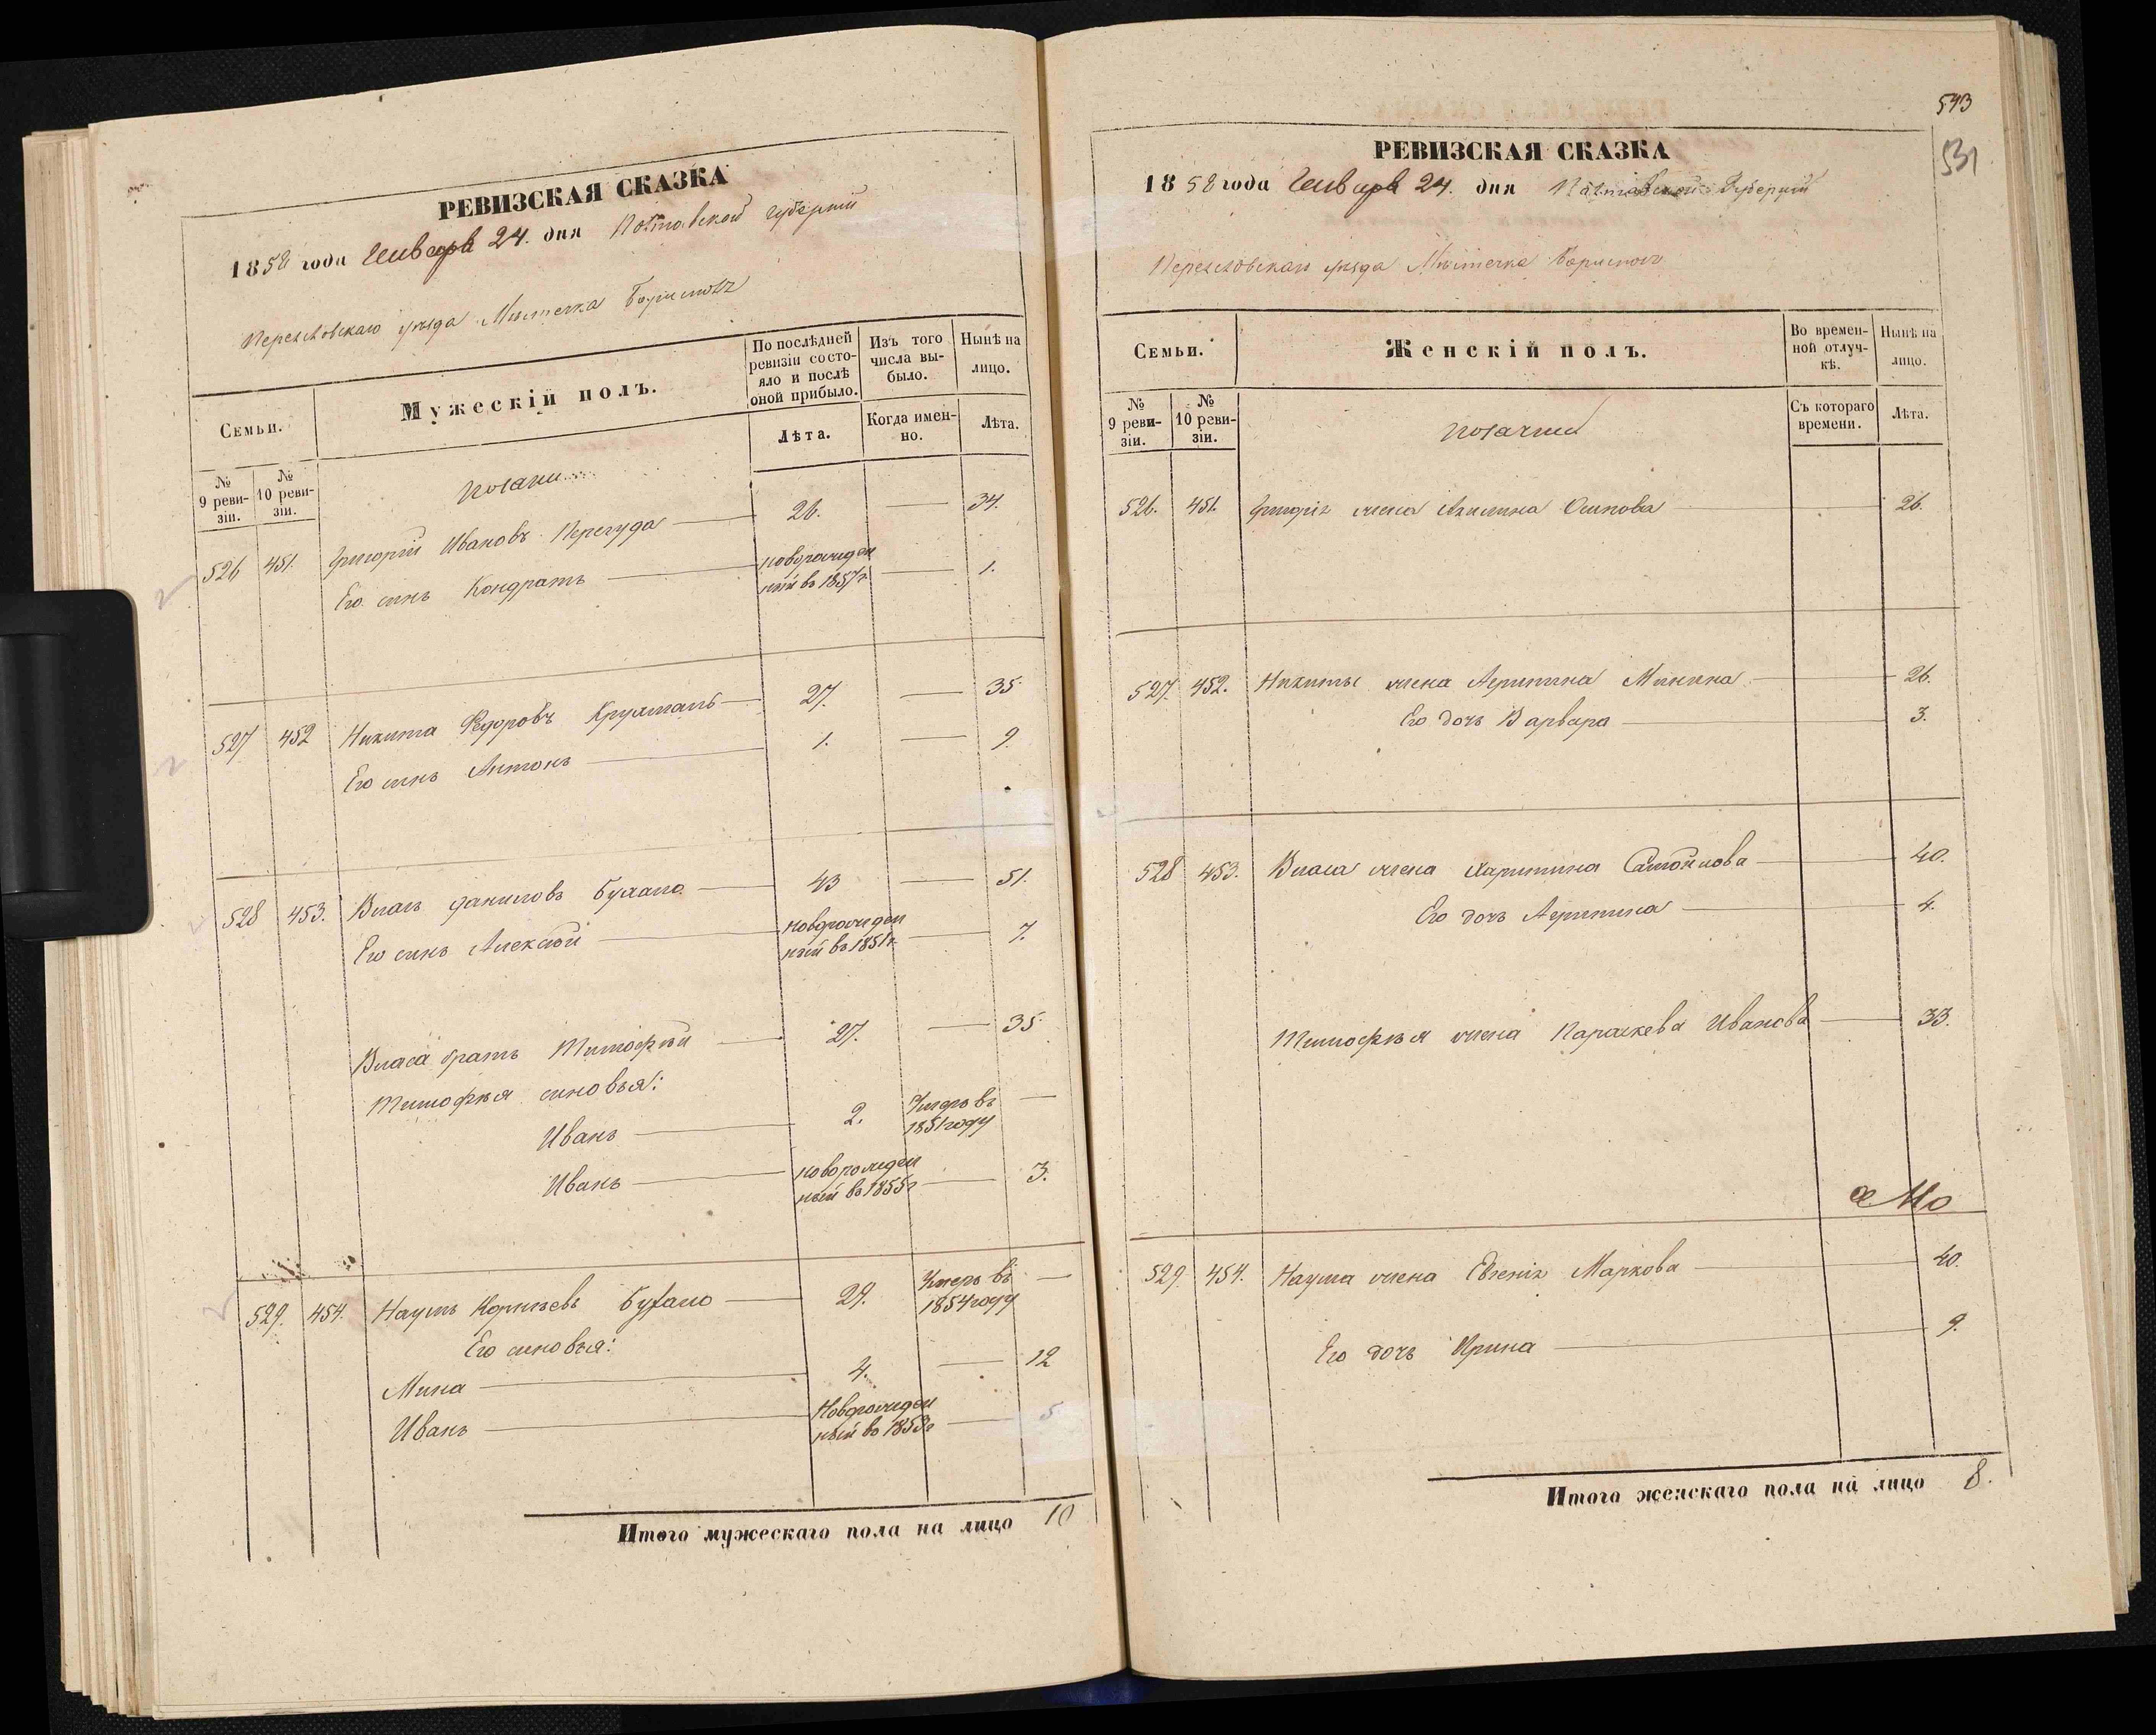 РЕВИЗСКАЯ СКАЗКА
1858 года Генваря 24. дня Полтавской губерніи
Переяловскаго уѣзда Мѣстечка Борисполя
Семьи.
Мужескій полъ.
По послѣдней ревизіи состояло и послѣ оной прибыло.
Изъ того числа выбыло.
Нынѣ на лицо.
№ 9 ревизіи.
№ 10 ревизіи.
Лѣта.
Когда именно.
Лѣта.
Козаки
526 451. Григорій Ивановъ Перегуда 26. — 34.
Его сынъ Кондратъ новорожден ный въ 1857 г — 1.
527 452 Никита Федоровъ 27. — 35
Его сынъ Антонъ 1. — 9.
528 453. Власъ Даниловъ 43 — 51.
Его сынъ Алексѣй новорожден ный въ 1851 г. — 7.
Власа братъ Тимофѣй 27. — 35
Тимофѣя сыновья:
Иванъ 2. Умеръ въ 1851 году —
Иванъ новорожден ный въ 1855 г — 3.
529. 454. Наумъ Корнѣевъ 29. Умеръ въ 1854 году —
Его сыновья:
Мина 4. — 12
Иванъ Новорожден ный въ 1853 г — 5
Итого мужескаго пола на лицо 10
543
531
РЕВИЗСКАЯ СКАЗКА
1858 года Генваря 24. дня Полтавской Губерніи
Переяловскаго уѣзда Мѣстечка Борисполя
Семьи.
Женскій полъ.
Во временной отлучкѣ.
Нынѣ на лицо.
№ 9 ревизіи.
№ 10 ревизіи.
Съ котораго времени.
Лѣта.
Козачки
526. 451. Григорія жена Акилина Осипова 26.
527. 452. Никиты жена Агрипина Минина 26.
Его дочь Варвара 3.
528 453. Власа жена Харитина Самойлова 40.
Его дочь Агрипина 4.
Тимофѣя жена Параскева Иванова 33.
529. 454. Наума жена Евгенія Маркова 40.
Его дочь Ирина 9.
Итого женскаго пола на лицо 8.